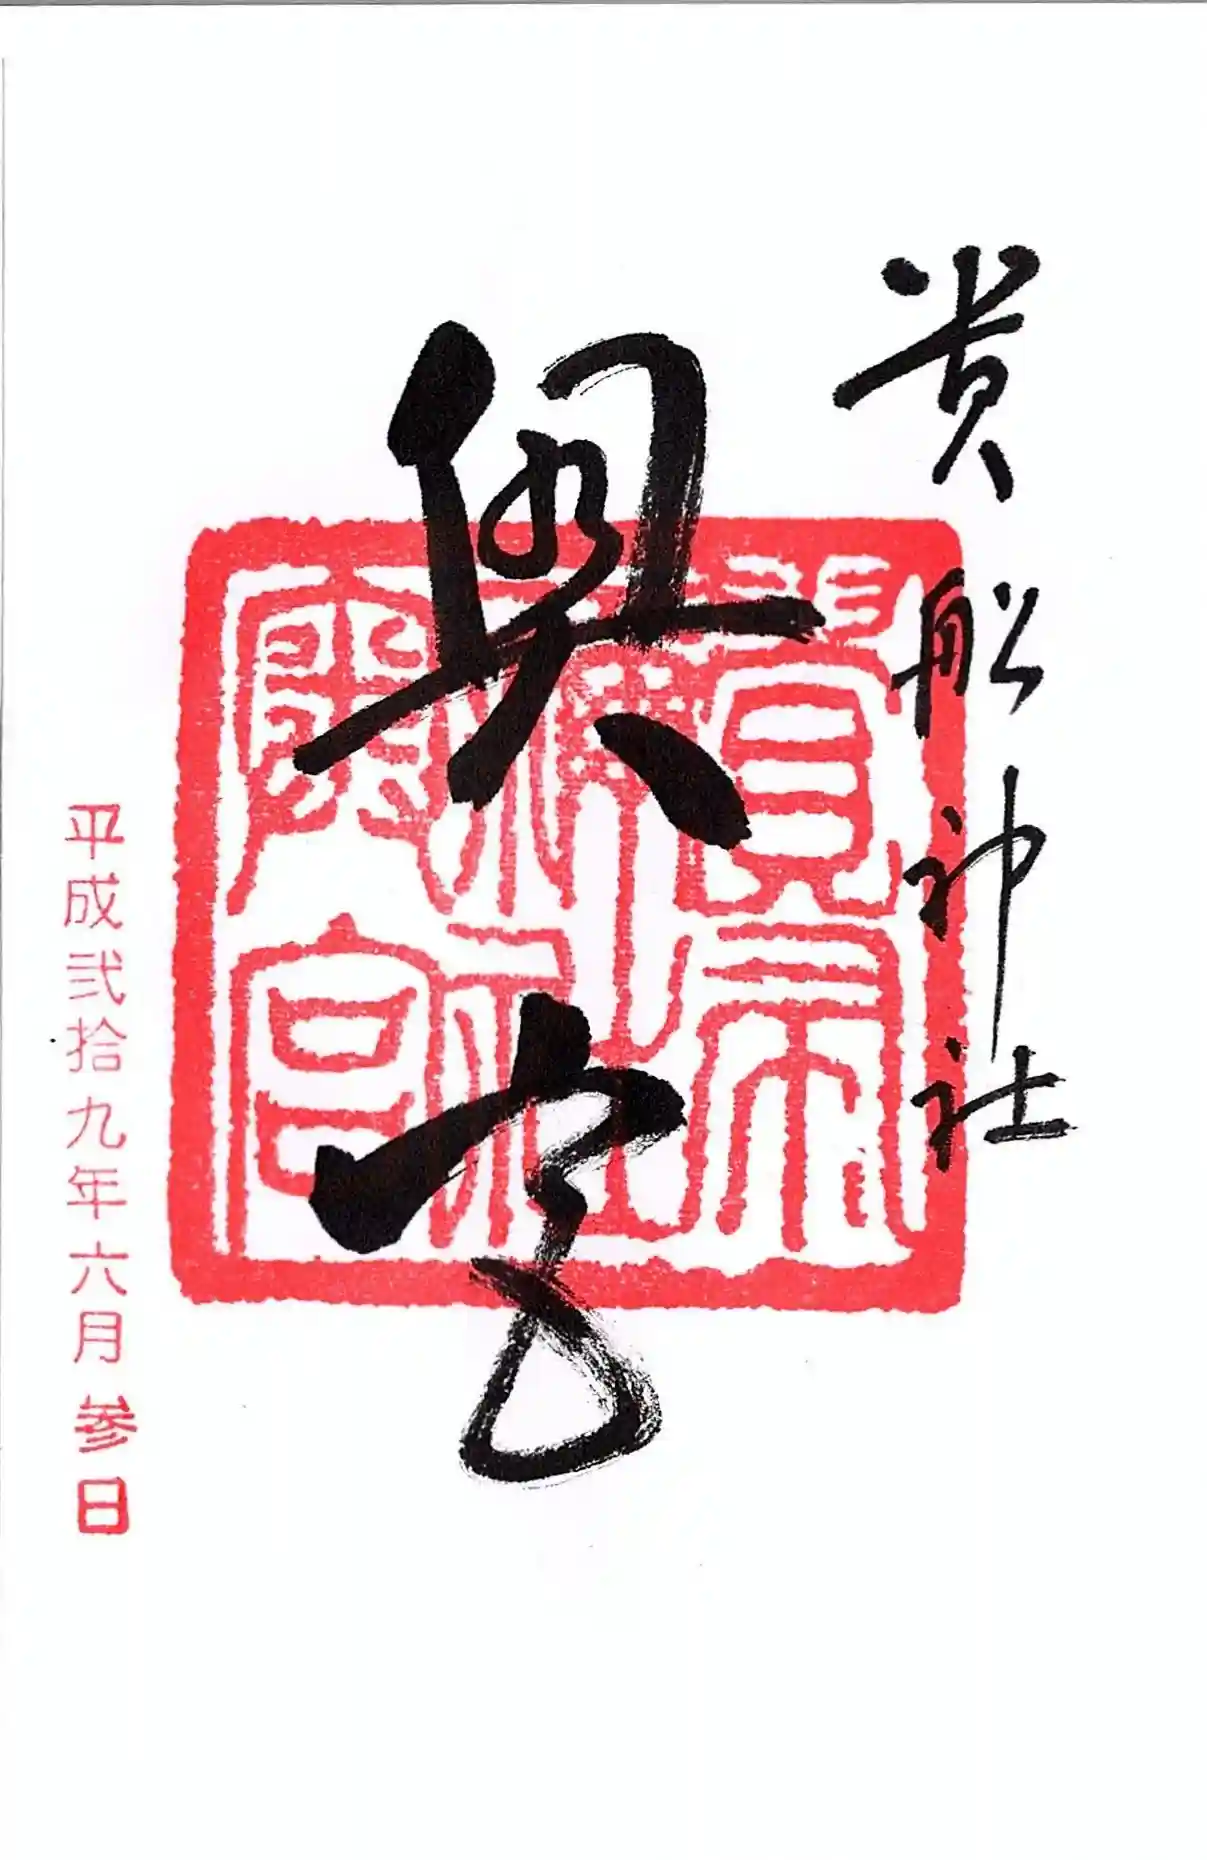 貴船神社
奥宮
貴布
禰社
奥宮
平成弐拾九年六月参日